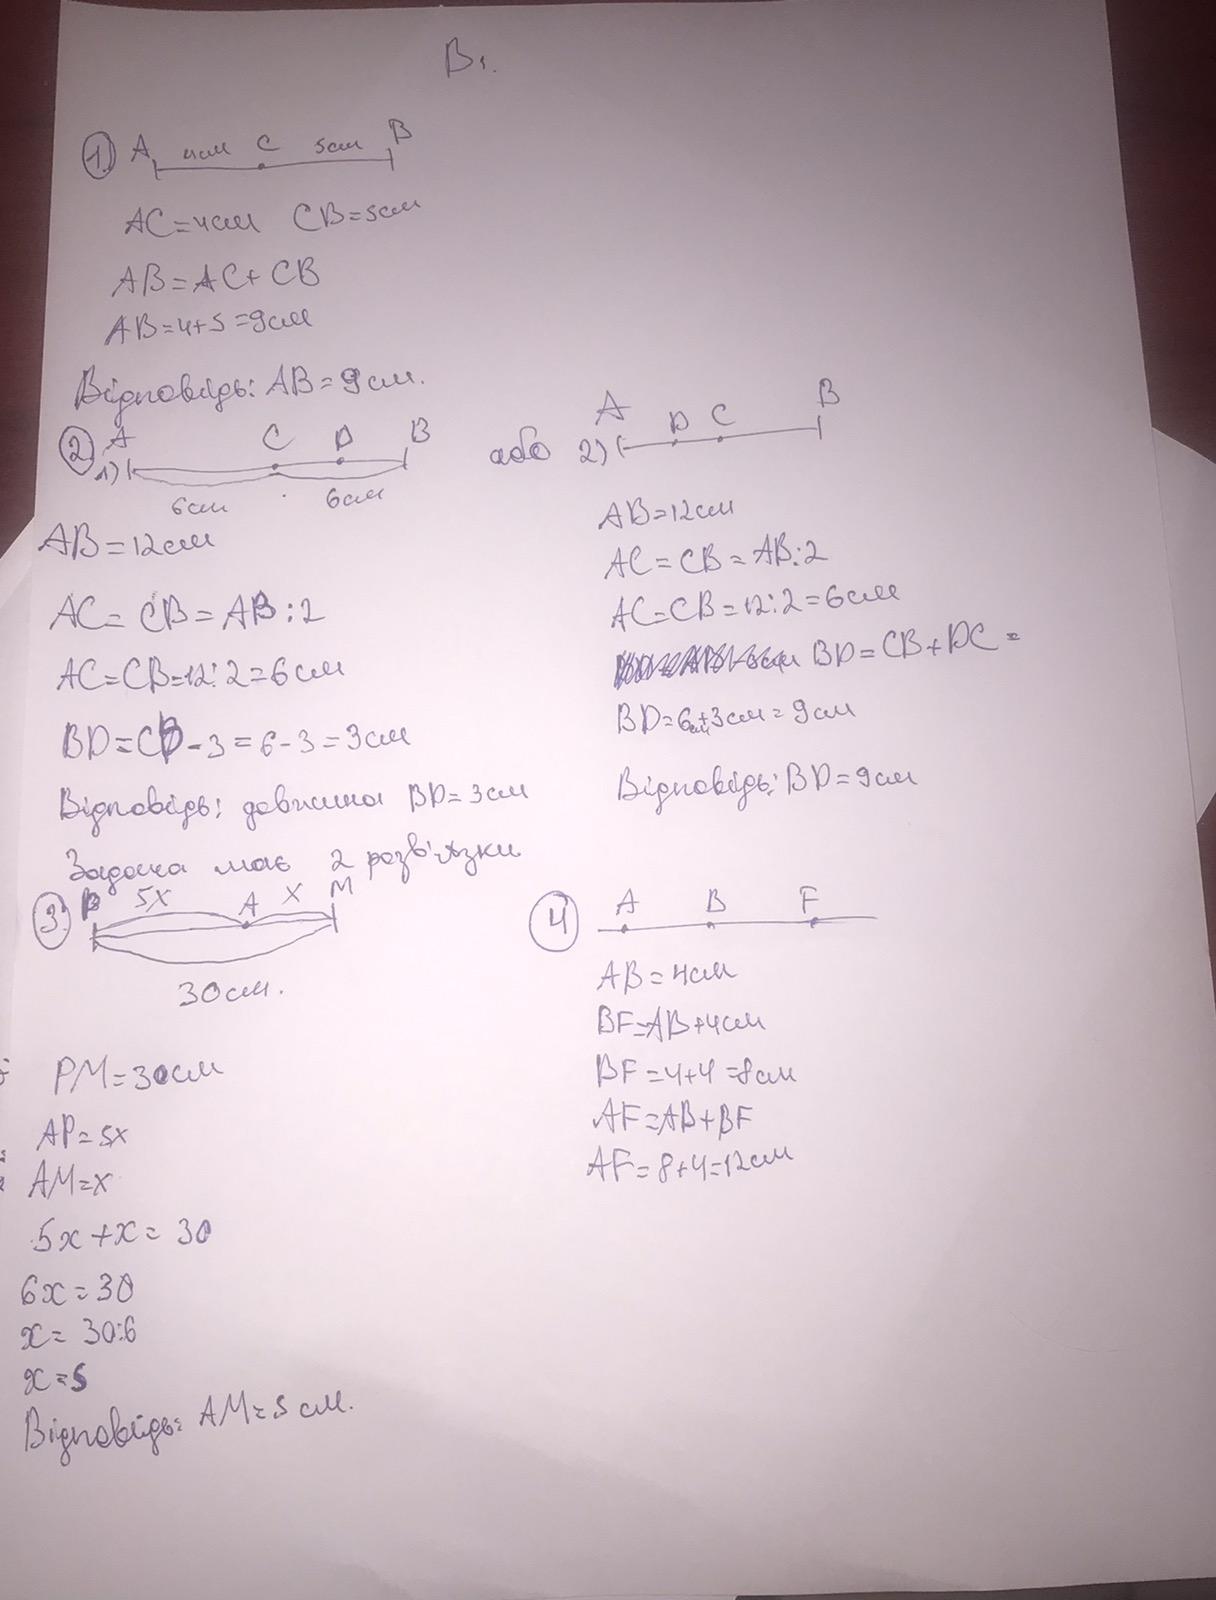 В1.
1) A 4см C 5см B
AC=4см CB=5см
AB=AC+CB
AB=4+5=9см
Відповідь: AB=9см.
2) 1) A C D B
6см 6см
AB=12см
AC=CB=AB:2
AC=CB=12:2=6см
BD=CB-3=6-3=3см
Відповідь: довжина BD=3см
Задача має 2 розв'язки
або 2) A D C B
AB=12см
AC=CB=AB:2
AC=CB=12:2=6см
BD=CB+DC=
BD=6см+3см=9см
Відповідь: BD=9см
3) P 5x A x M
30см.
PM=30см
AP=5x
AM=x
5x+x=30
6x=30
x=30:6
x=5
Відповідь: AM=5см.
4) A B F
AB=4см
BF=AB+4см
BF=4+4=8см
AF=AB+BF
AF=8+4=12см